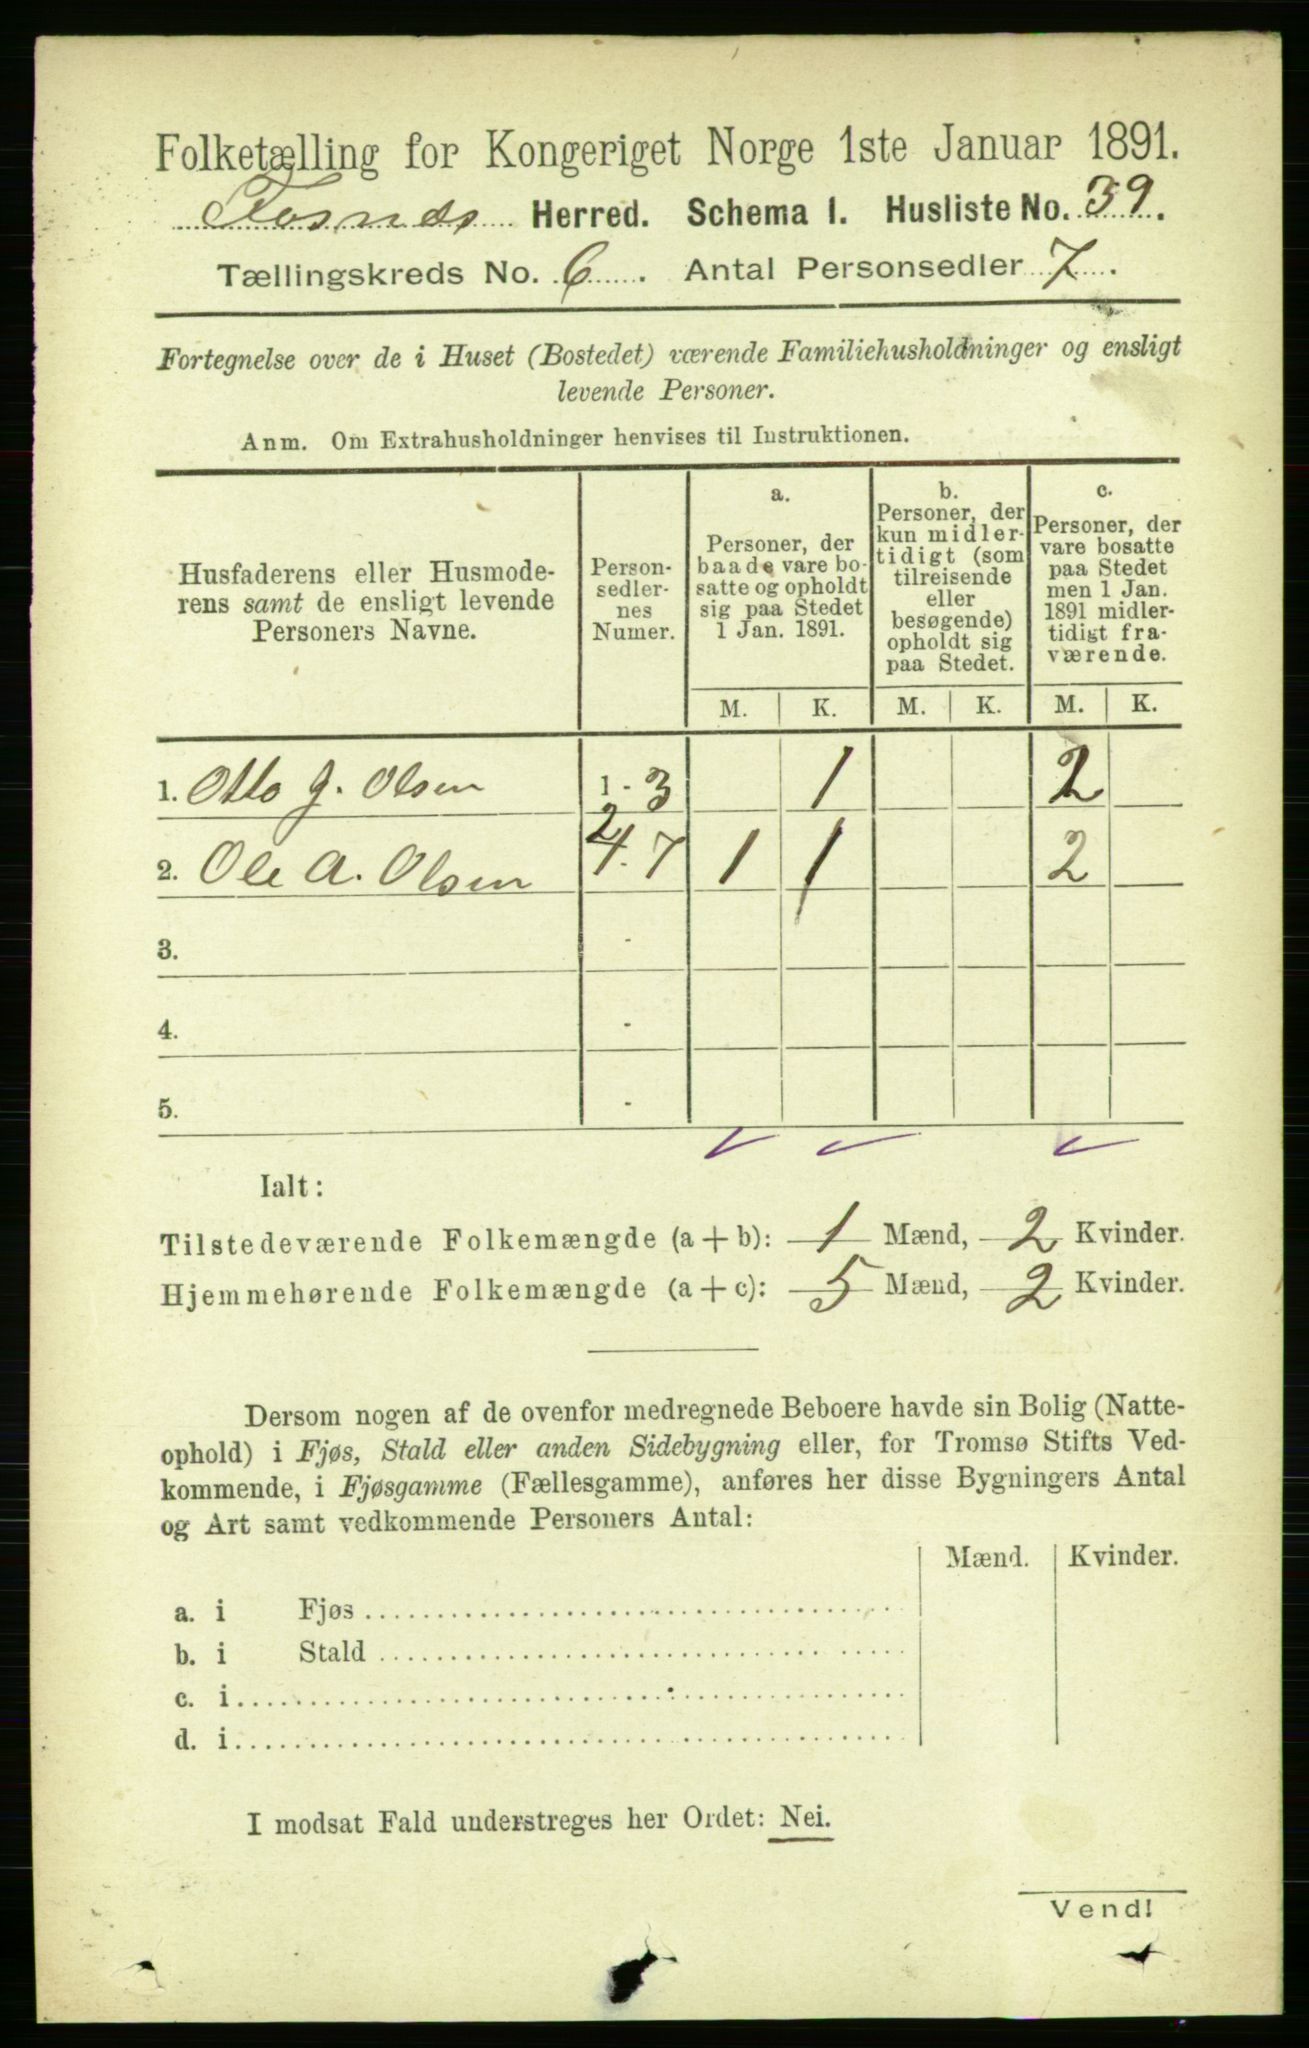 Folketælling for Kongeriget Norge 1ste Januar 1891.
Fosnes Herred. Schema 1. Husliste No. 39.
Tællingskreds No. 6. Antal Personsedler 7.
Fortegnelse over de i Huset (Bostedet) værende Familiehusholdninger og ensligt
levende Personer.
Anm. Om Extrahusholdninger henvises til Instruktionen.
Husfaderens eller Husmode-
rens samt de ensligt levende
Personers Navne.
Person-
sedler-
nes
Numer.
a.
Personer, der
baade vare bo-
satte og opholdt
sig paa Stedet
1 Jan. 1891.
b.
Personer, der
kun midler-
tidigt (som
tilreisende
eller
besøgende)
opholdt sig
paa Stedet.
c.
Personer, der
vare bosatte
paa Stedet
men 1 Jan.
1891 midler-
tidigt fra-
værende.
M. K. M. K. M. K.
1. Otto J. Olsen 1 - 3 1 2
2
2. Ole A. Olsen 4. 7 1 1 2
3. -
4. -
5. -
Ialt:
Tilstedeværende Folkemængde (a + b): 1 Mænd, 2 Kvinder.
Hjemmehørende Folkemængde (a + c): 5 Mænd, 2 Kvinder.
Dersom nogen af de ovenfor medregnede Beboere havde sin Bolig (Natte-
ophold) i Fjøs, Stald eller anden Sidebygning eller, for Tromsø Stifts Ved-
kommende, i Fjøsgamme (Fællesgamme), anføres her disse Bygningers Antal
og Art samt vedkommende Personers Antal:
Mænd. Kvinder.
a. i Fjøs
b. i Stald
c. i
d. i
I modsat Fald understreges her Ordet: Nei.
Vend!